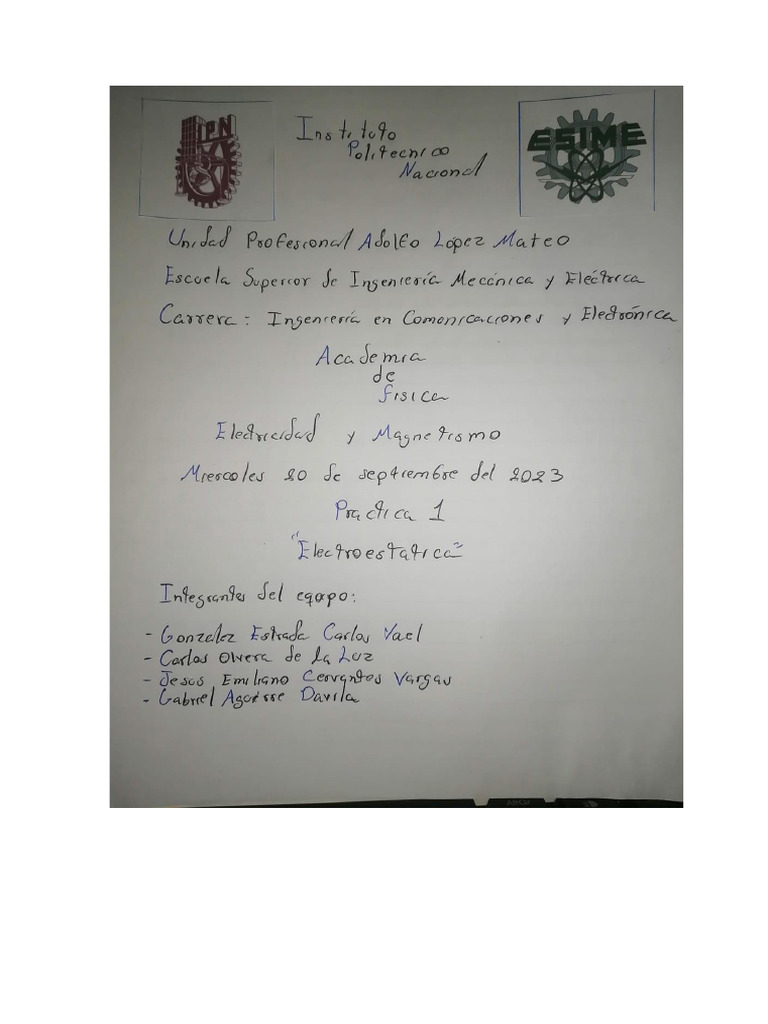 IPN
Instituto
Politecnico
Nacional
ESIME
Unidad Profesional Adolfo López Mateo
Escuela Superior de Ingeniería Mecánica y Eléctrica
Carrera: Ingeniería en Comunicaciones y Electrónica
Academia
de
fisica
Electricidad y Magnetismo
Miercoles 20 de septiembre del 2023
Practica 1
"Electroestatica"
Integrantes del equipo:
- Gonzalez Estrada Carlos Yael
- Carlos Olvera de la Luz
- Jesus Emiliano Cervantes Vargas
- Gabriel Aguirre Davila